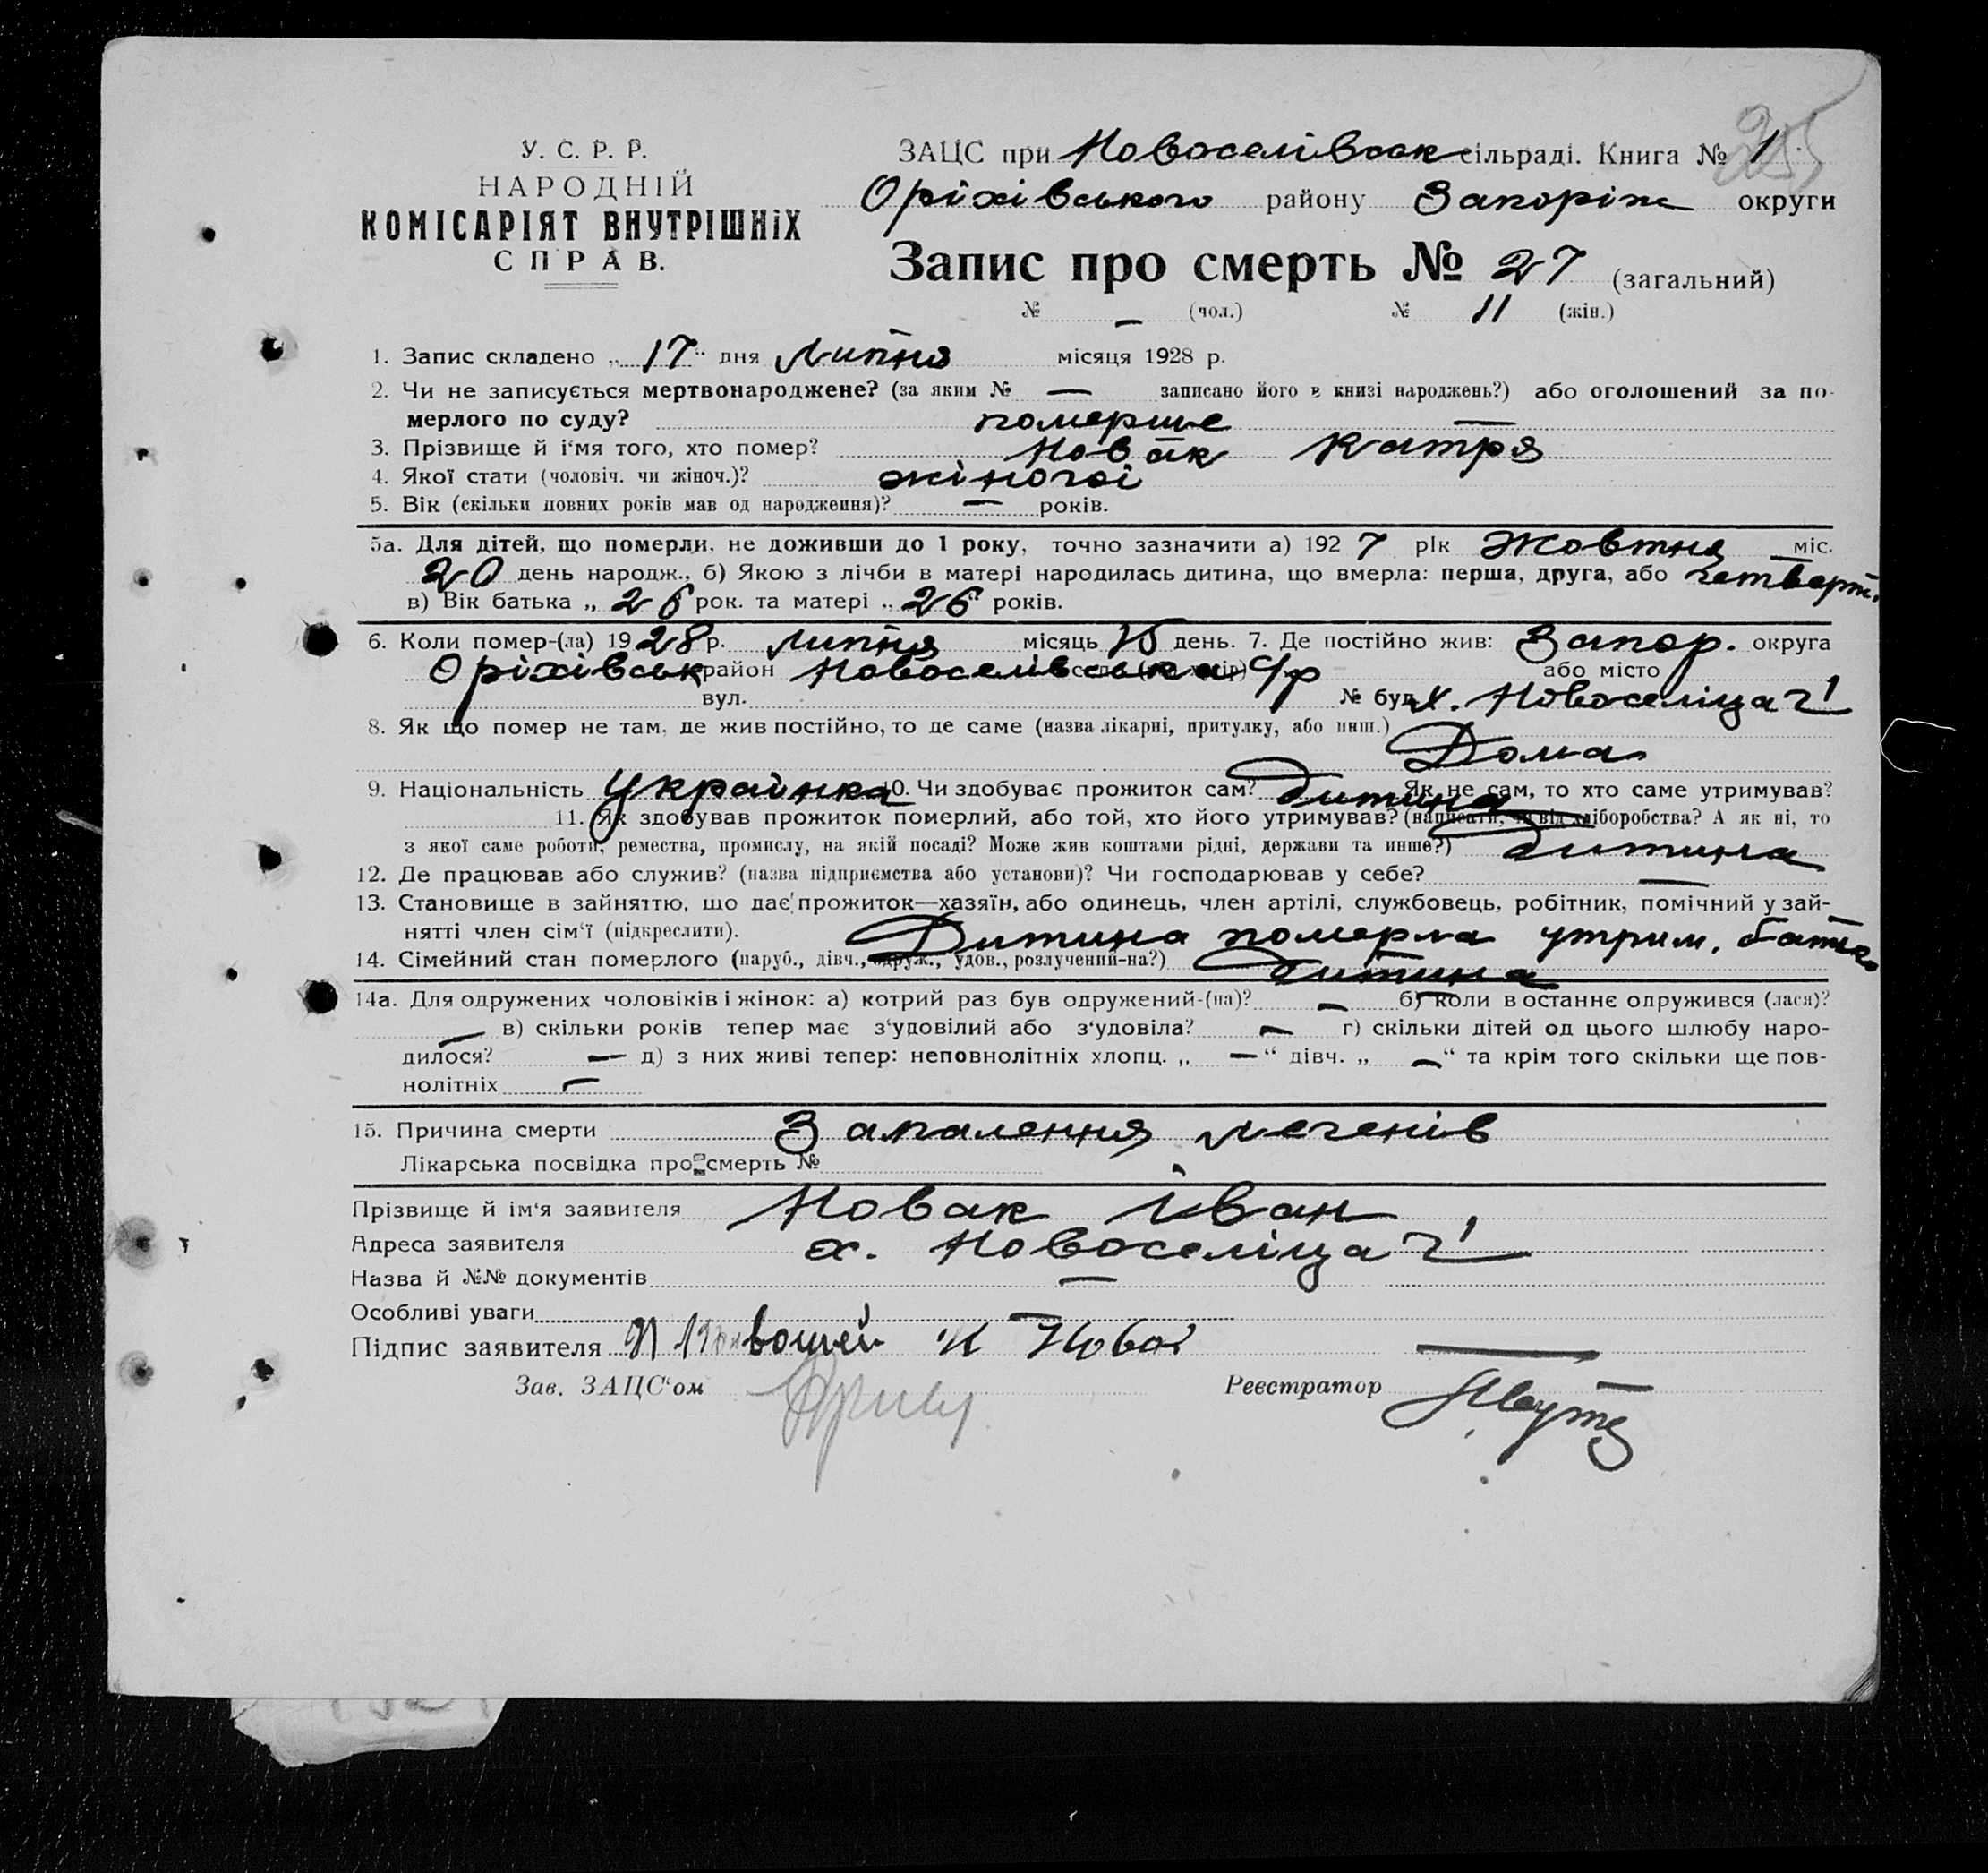 255
У. С. Р. Р.
НАРОДНІЙ
КОМІСАРІЯТ ВНУТРІШНіХ
СПРАВ.
ЗАЦС при Новоселівськ сільраді. Книга № 1
Оріхівського району Запоріж округи
Запис про смерть № 27 (загальний)
№ — (чол.) № 11 (жін.)
1. Запис складено „ 17 " дня липня місяця 1928 р.
2. Чи не записується мертвонароджене? (за яким № — записано його в книзі народжень?) або оголошений за по-
мерлого по суду? померше —
3. Прізвище й і'мя того, хто помер? Новак Катря
4. Якої стати (чоловіч. чи жіноч.)? жіночої
5. Вік (скільки повних років мав од народження)? — років.
5а. Для дітей, що померли, не доживши до 1 року, точно зазначити а) 192 7 рік Жовтня міс.
20 день народж., б) Якою з лічби в матері народилась дитина, що вмерла: перша, друга, або четверт.
в) Вік батька „ 26 рок. та матері „ 26 " років.
6. Коли помер-(ла) 19 28 р. липня місяць 15 день. 7. Де постійно жив: Запор. округа
Оріхівськ район Новоселівська с/р або місто
вул. № буд х. Новоселіца 2!
8. Як що помер не там, де жив постійно, то де саме (назва лікарні, притулку, або инш.)
Дома
9. Національність Українка 10. Чи здобуває прожиток сам? дитина Як не сам, то хто саме утримував?
11. Як здобував прожиток померлий, або той, хто його утримував? (написати, чи від хліборобства? А як ні, то
з якої саме роботи, ремества, промислу, на якій посаді? Може жив коштами рідні, держави та инше?) дитина
12. Де працював або служив? (назва підприємства або установи)? Чи господарював у себе? —
13. Становище в зайняттю, що дає прожиток—хазяїн, або одинець, член артілі, службовець, робітник, помічний у зай-
нятті член сім'ї (підкреслити). Дитина померла утрим. батько
14. Сімейний стан померлого (паруб., дівч., одруж., удов., розлучений-на?) дитина
14а. Для одружених чоловіків і жінок: а) котрий раз був одружений-(на)? — б) коли в останнє одружився (лася)?
— в) скільки років тепер має з'удовілий або з'удовіла? — г) скільки дітей од цього шлюбу наро-
дилося? — д) з них живі тепер: неповнолітніх хлопц. „ — " дівч. „ — " та крім того скільки ще пов-
нолітніх —
15. Причина смерти Запалення легенів
Лікарська посвідка про смерть №
Прізвище й ім'я заявителя Новак Іван
Адреса заявителя х. Новоселіца 2!
Назва й №№ документів —
Особливі уваги —
Підпис заявителя Новак —
Зав. ЗАЦС'ом
Реєстратор